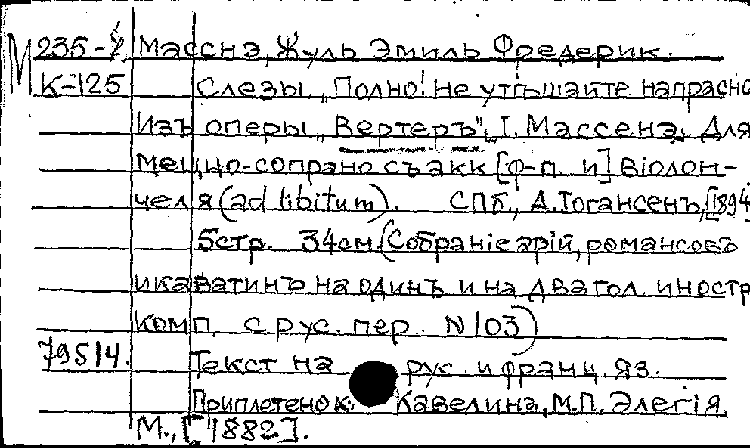 М 235-2 Масснэ, Жуль Эмиль Фредерик.
К-125 Слезы. „Полно! Не утѣшайте напрасно
Изъ оперы „Вертеръ", I. Массенэ. Для
меццо-сопрано съ акк [ф-п. и] віолон-
челя (ad libitum). СПб., А. Іогансенъ, [1894
5стр. 34см (Собраніе арій, романсовъ
и каватинъ на одинъ и на два гол. иностр
комп. с рус. пер. N 103)
79514. Текст на рус. и франц. яз.
Приплетено к: Кавелина, М.П. Элегія
М., [1882].